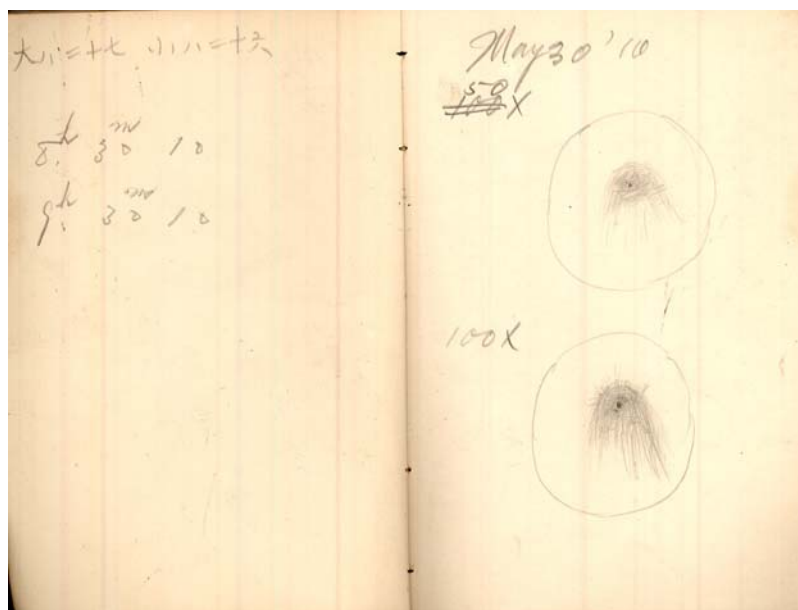 大八=十七 小八=十六
8.h 30m 10
9.h 30m 10
May 30 '10
50
100X
100X